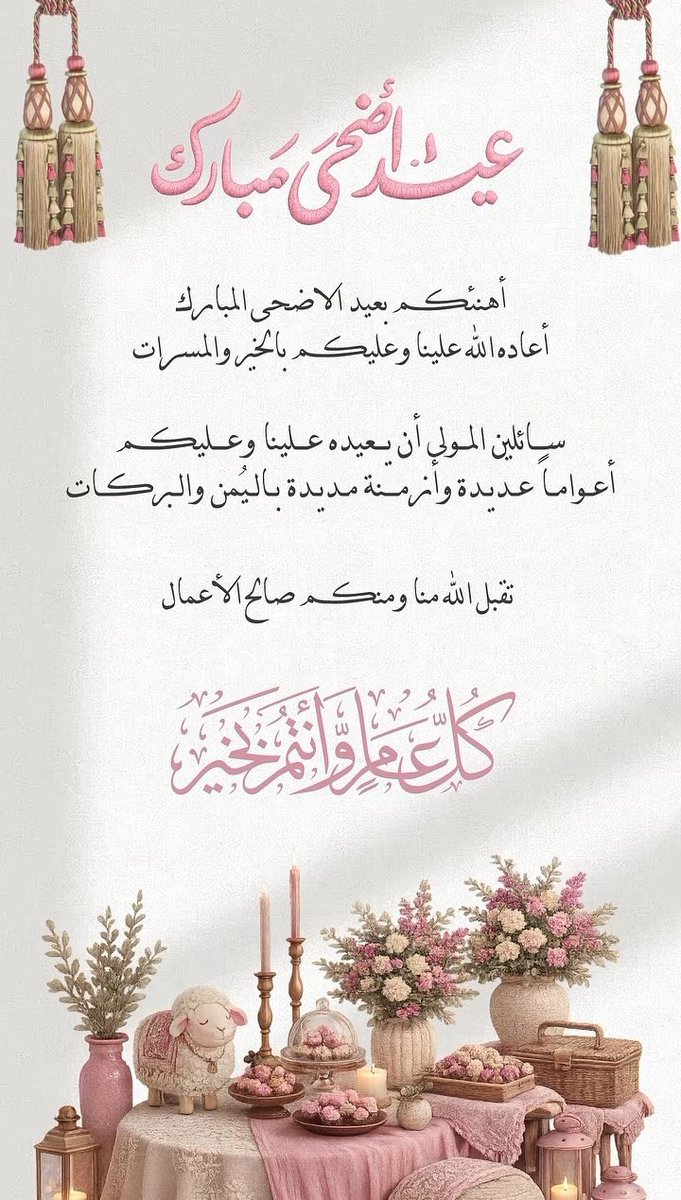 عيد أضحى مبارك
أهنئكم بعيد الاضحى المبارك
أعاده الله علينا وعليكم بالخير والمسرات
سائلين المولى أن يعيده علينا وعليكم
أعواماً عديدة وأزمنة مديدة باليُمن والبركات
تقبل الله منا ومنكم صالح الأعمال
كُلُّ عَامٍ وَّأَنتُمْ بِخَيْر